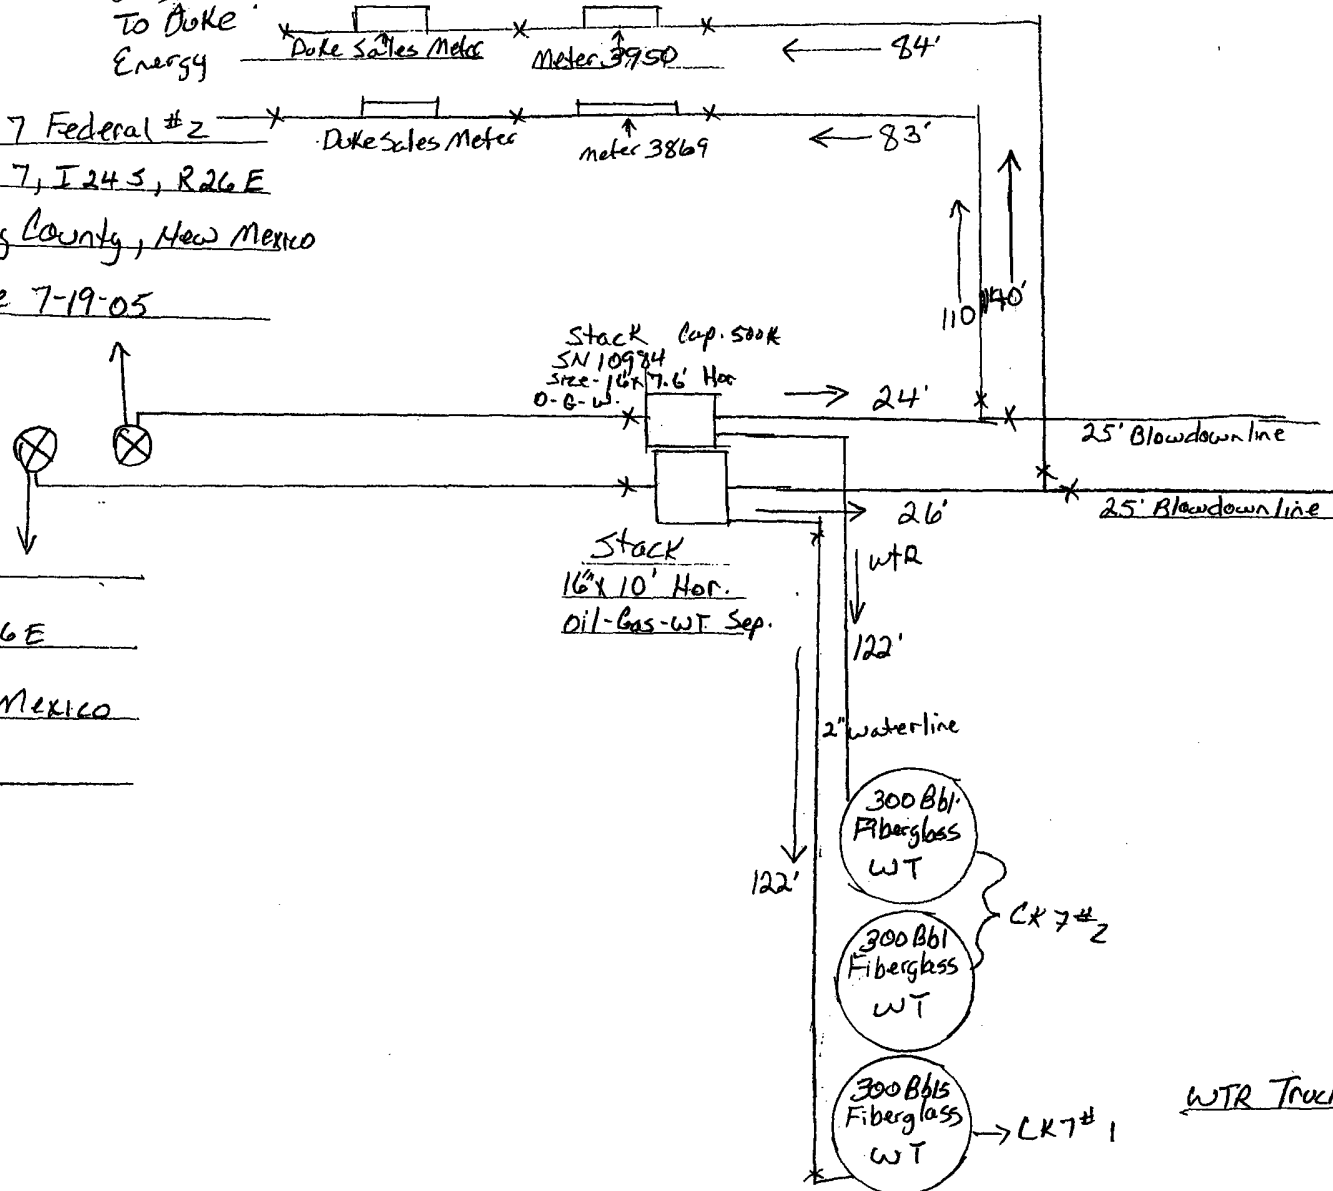 To Duke
Energy
Duke Sales Meter
Meter 3950
84'
7 Federal #2
Duke Sales Meter
meter 3869
83'
7, T 24 S, R 26 E
County, New Mexico
7-19-05
110
140'
Stack Cap. 500K
SN 10984
Size - 16"x 7.6' Hor
O-G-W.
24'
25' Blowdown line
26'
25' Blowdown line
Stack
16"x 10' Hor.
Oil-Gas-WT Sep.
wtR
122'
6 E
Mexico
2" waterline
122'
300 Bbl.
Fiberglass
WT
CK 7 #2
300 Bbl
Fiberglass
WT
300 Bbls
Fiberglass
WT
CK 7 #1
WTR Truck